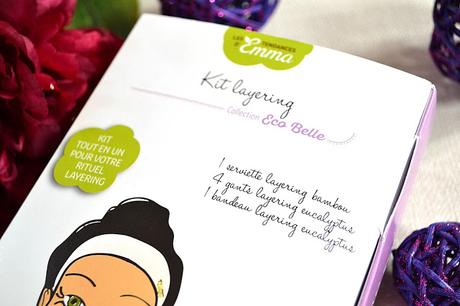 LES TENDANCES
d'Emma
Kit layering
Collection Eco Belle
KIT
TOUT EN UN
POUR VOTRE
RITUEL
LAYERING
1 serviette layering bambou
4 gants layering eucalyptus
1 bandeau layering eucalyptus